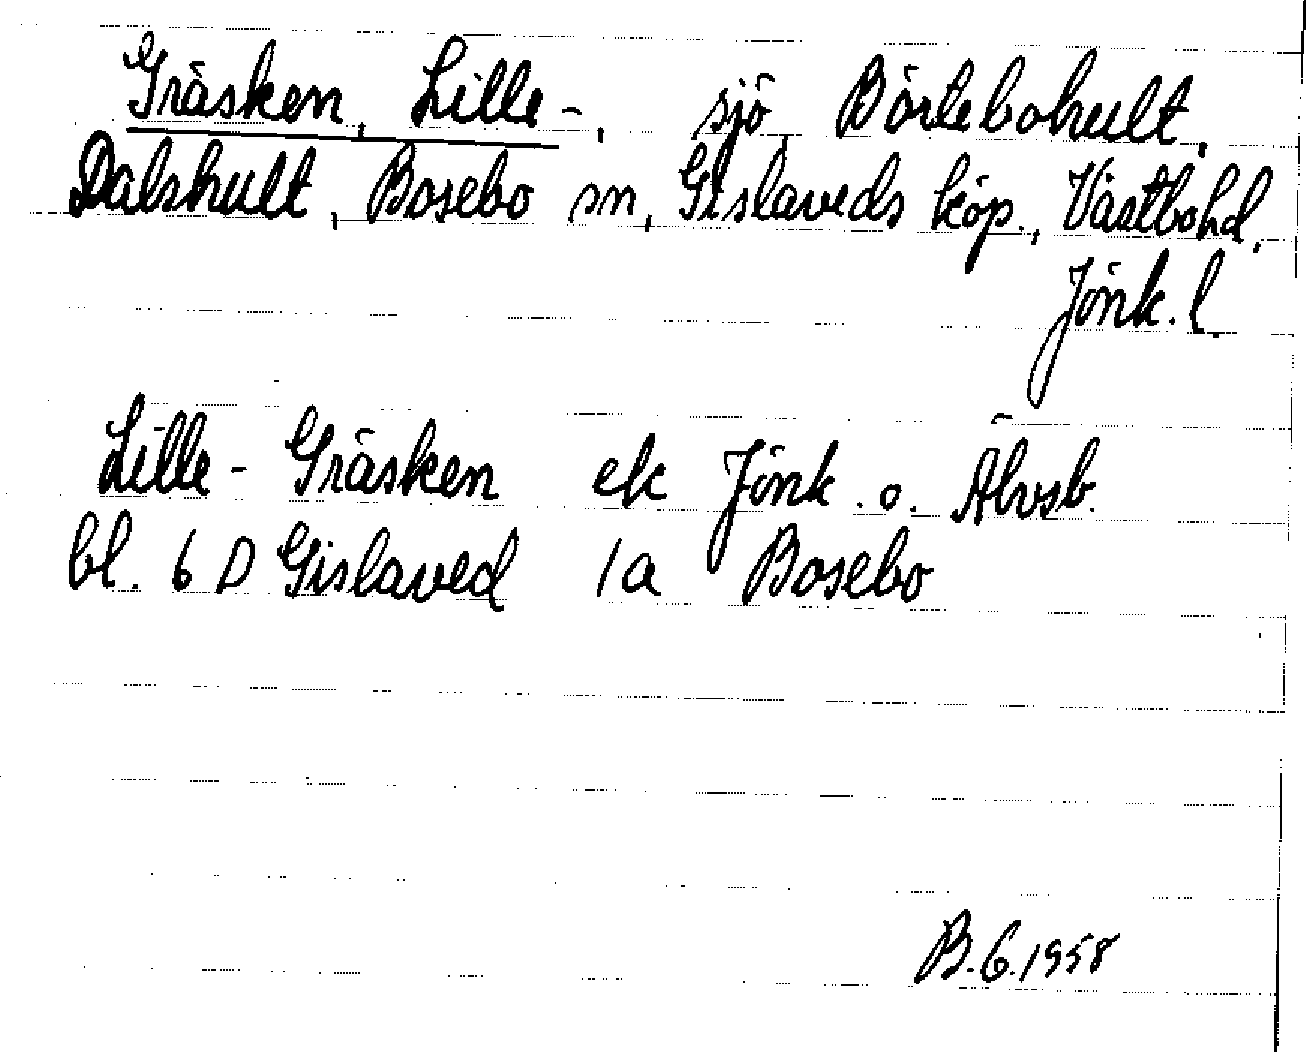 Gräsken, Lille-, sjö, Börlebohult,
Dalshult, Bosebo sn, Gislaveds köp., Västbohd,
Jönk. l.
Lille-Gräsken ek Jönk. o. Älvsb.
bl. 6 D Gislaved 1a Bosebo
B.G.1958